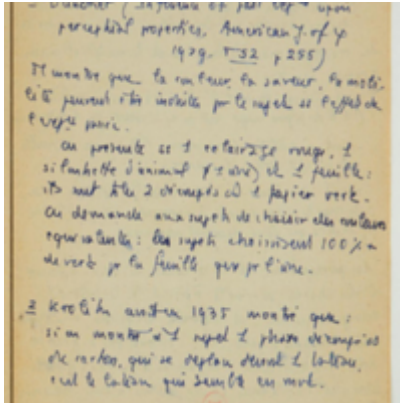 – Duncker (Influence of past exp^ce upon
perceptual properties, American J. of ψ
1939. T 52 p 255)
Il montre que la couleur, la saveur, la mobi-
lité peuvent être induites par le sujet ss l'effet de
l'exp^ce passée.
on présente ss 1 éclairage rouge, 1
silhouette d'animal (1 âne) et 1 feuille :
ils ont tte 2 découpés ds 1 papier vert.
On demande aux sujets de choisir des couleurs
équivalentes : les sujets choisissent 100% +
de vert pr la feuille que pr l'âne.
2 Krolik en 1935 montre que :
si on montre à 1 sujet 1 phare découpé
de carton, qui se déplace devant 1 bateau,
c'est le bateau qui semble en mvt.